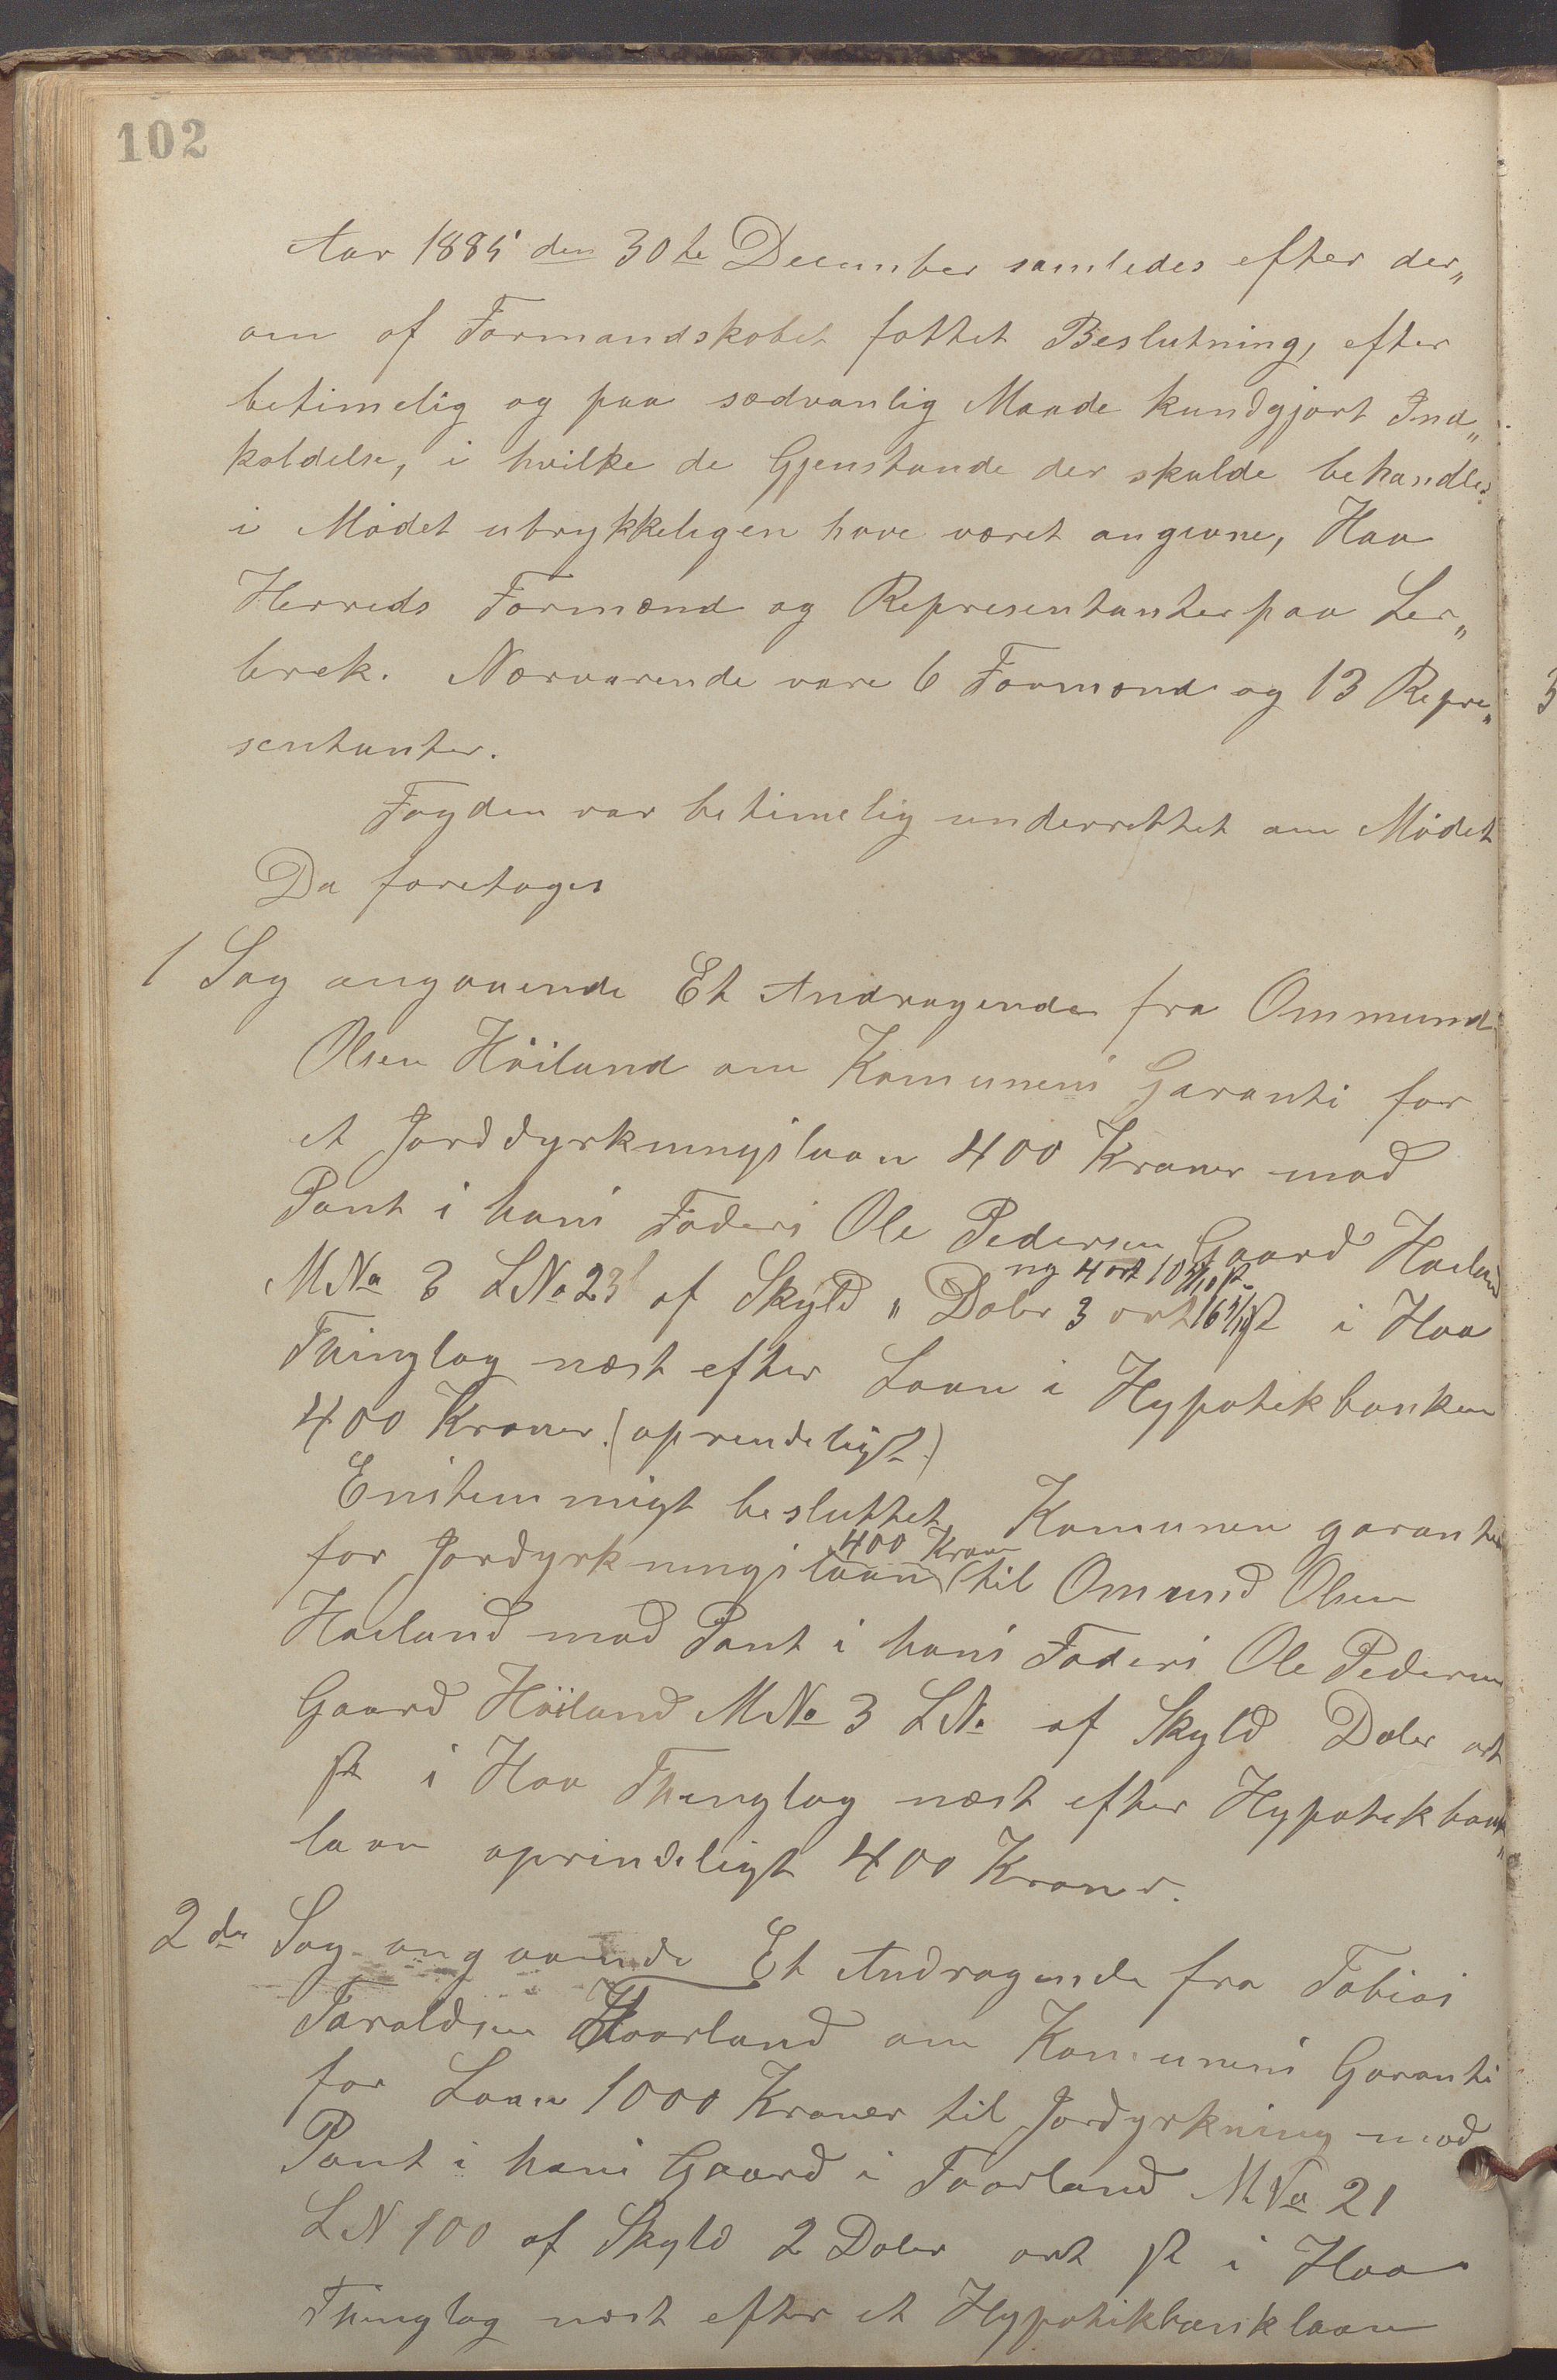 102
Aar 1885 den 30te December samledes efter der„
om af Formandskabet fattet Beslutning, efter
betimelig og paa sædvanlig Maade kundgjort Ind„
kaldelse, i hvilke de Gjenstande der skulde behandles
i Mødet utrykkeligen have været angivne, Haa
Herreds Formænd og Representanter paa Ler„
brek. Nærværende vare 6 Formænd og 13 Repre„
sentanter.
Fogden var betimelig underrettet om Mødet
Da foretoges
1 Sag angaaende Et Andragende fra Ommund
Olsen Höiland om Komunens Garanti for
et Jorddyrkningslaan 400 Kroner mod
Pant i hans Faders Ole Pedersen Gaard Høiland
ny 4 ort 10
MNo 3 LNo 23b af Skyld „ Daler 3 ort 16 ß i Haa
Thinglag næst efter Laan i Hypotekbanken
400 Kroner. (oprindeligt.)
Enstemmigt besluttet, Komunen garanterer
400 Kroner
for Jordyrkningslaan til Omund Olsen
Høiland mod Pant i hans Faders Ole Pedersen
Gaard Höiland MNo 3 LNo af Skyld Daler ort
ß i Haa Thinglag næst efter Hypotekbank„
laan oprindeligt 400 Kroner.
2den Sag angaaende Et Andragende fra Tobias
Taraldsen Haarland om Komunens Garanti
for Laan 1000 Kroner til Jordyrkning mod
Pant i hans Gaard i Taarland MNo 21
LN 100 af Skyld 2 Daler ort ß i Haa
Thinglag næst efter et Hypotikbanklaan